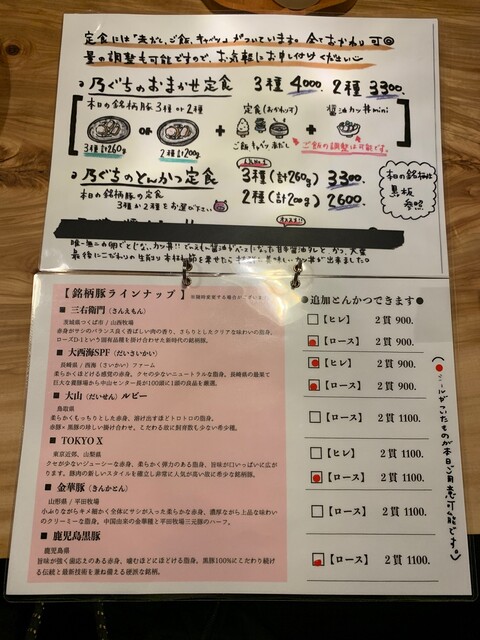 定食には「赤だし、ご飯、キャベツ」がついています。全ておかわり可
量の調整も可能ですので、お気軽にお申し付けください
乃ぐちのおまかせ定食 3種 4000. 2種 3300.
本日の銘柄豚3種or2種
定食(おかわり可)
醤油カツ丼mini
or
+
+
3種計260g
2種計200g
ご飯 キャベツ 赤だし
ご飯の調整は可能です。
乃ぐちのとんかつ定食 3種(計260g) 3300.
本日の銘柄豚の定食 2種(計200g) 2600.
3種か2種をお選び下さい
本日の銘柄は
黒板
参照
【 銘柄豚ラインナップ 】
■ 三右衛門(さんえもん)
茨城県つくば市 / 山西牧場
赤身がサシのバランス良く香ばしい肉の香り、さらりとしたクリアな味わいの脂身。
ローズD-1という固有品種を掛け合わせた新時代の銘柄豚。
■ 大西海SPF(だいさいかい)
長崎県 / 西海(さいかい)ファーム
柔らかくほどける感覚の赤身、クセの少ないニュートラルな脂身。長崎県の最果て
巨大な養豚場から中山センター長が100頭に1頭の良品を厳選。
■ 大山(だいせん)ルビー
鳥取県
柔らかくもっちりとした赤身、溶け出すほどトロトロの脂身。
赤豚×黒豚の珍しい掛け合わせ、こだわる故に飼育数も少ない希少種。
■ TOKYO X
東京近郊、山梨県
クセが少ないジューシーな赤身、柔らかく弾力のある脂身、旨味が口いっぱいに広が
ります。豚肉の新しいスタイルを確立し非常に人気が高い故に希少な銘柄豚。
■ 金華豚(きんかとん)
山形県 / 平田牧場
小ぶりながらキメ細かく全体にサシが入った柔らかな赤身、濃厚ながら上品な味わい
のクリーミーな脂身。中国由来の金華種と平田牧場三元豚のハーフ。
■ 鹿児島黒豚
鹿児島県
旨味が強く歯応えのある赤身、噛むほどにほどける脂身。黒豚100%にこだわり続け
る伝統と最新技術を兼ね備える硬派な銘柄。
●追加とんかつできます●
【ヒレ】 2貫 900.
【ロース】 2貫 900.
【ヒレ】 2貫 900.
【ロース】 2貫 900.
【ロース】 2貫 1100.
【ヒレ】 2貫 1100.
【ロース】 2貫 1100.
【ロース】 2貫 1100.
【ロース】 2貫 1100.
(●シールがついたものが本日ご用意可能です。)